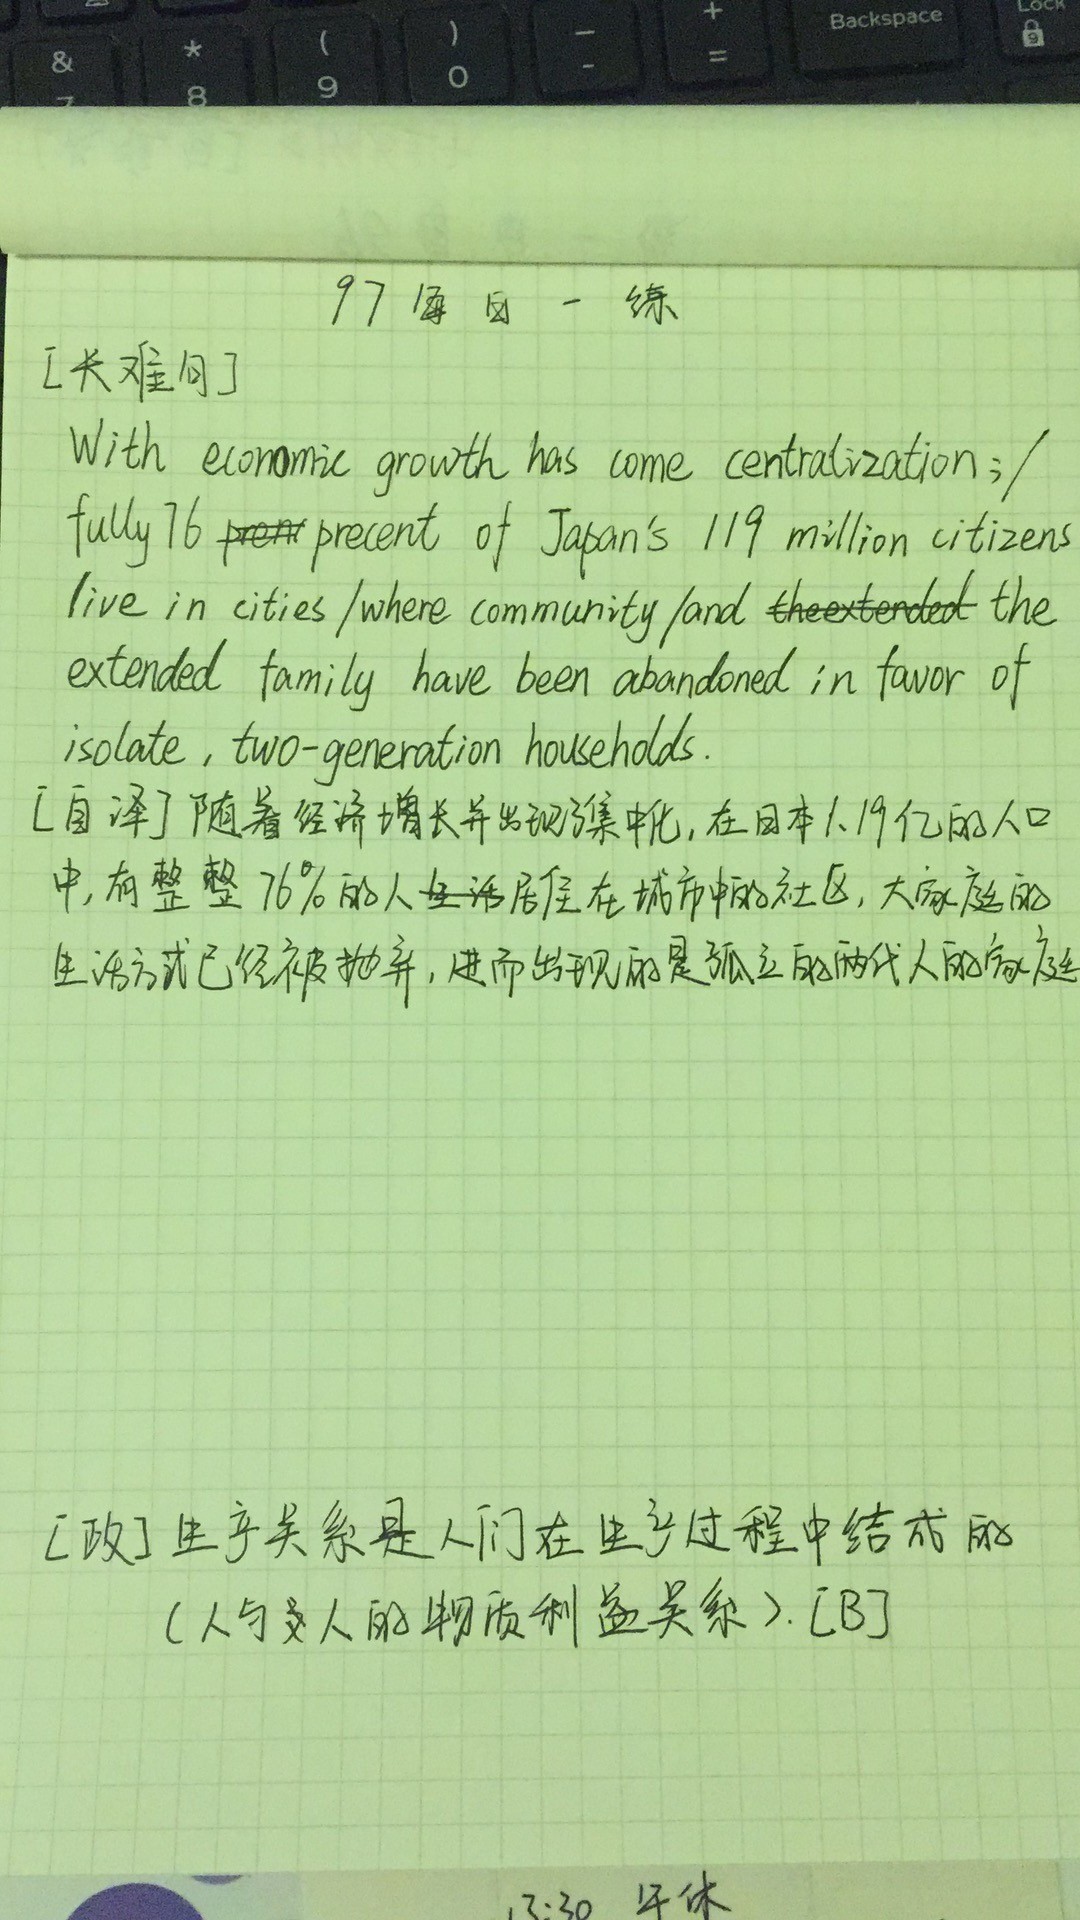 Backspace
Lock
& * ( ) _ +
7 8 9 0 - =
9
97每日一练
[长难句]
With economic growth has come centralization;/
fully 76 precent of Japan's 119 million citizens
live in cities /where community /and theextended the
extended family have been abandoned in favor of
isolate, two-generation households.
[自译] 随着经济增长并出现了集中化,在日本1.19亿的人口
中,有整整76%的人生活居住在城市中的社区,大家庭的
生活方式已经被抛弃,进而出现的是孤立的两代人的家庭
[政] 生产关系是人们在生产过程中结成的
(人与人的物质利益关系).[B]
13:30 午休